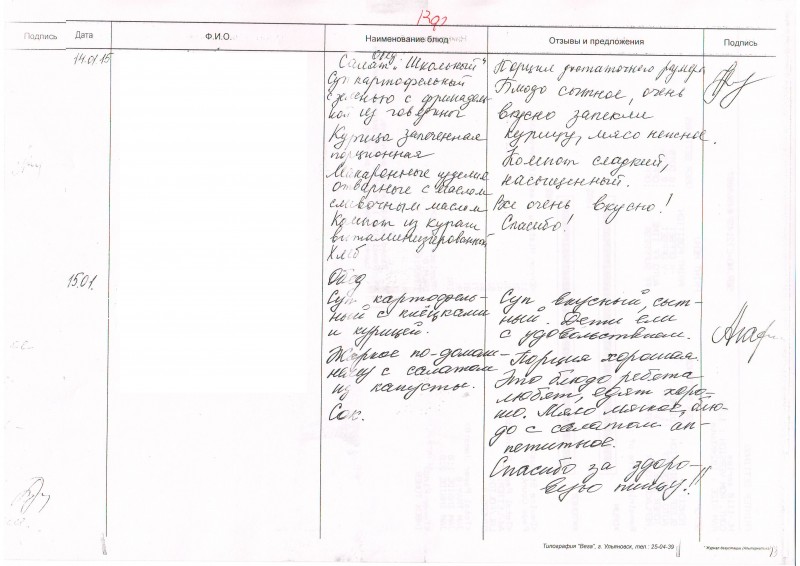 Подпись Дата Ф.И.О. Наименование блюд Отзывы и предложения Подпись
14.01.15
Обед
Салат "Школьный"
Суп картофельный
с зеленью с фрикадель-
кой из говядины
Курица запеченная
порционная
Макаронные изделия
отварные с маслом
сливочным маслом
Компот из кураги
витаминизированной
Хлеб
Порция достаточного размера
Блюдо сытное, очень
вкусно запекли
курицу, мясо нежное.
Компот сладкий,
насыщенный.
Все очень вкусно!
Спасибо!
15.01.
Обед
Суп картофель-
ный с клёцками
и курицей.
Жаркое по-домаш-
нему с салатом
из капусты.
Сок.
Суп вкусный, сыт-
ный. Дети ели
с удовольствием.
Порция хорошая.
Это блюдо ребята
любят, едят хоро-
шо. Мясо мягкое, блю-
до с салатом ап-
петитное.
Спасибо за здоро-
вую пищу!!!
Типография "Вега", г. Ульяновск, тел.: 25-04-39